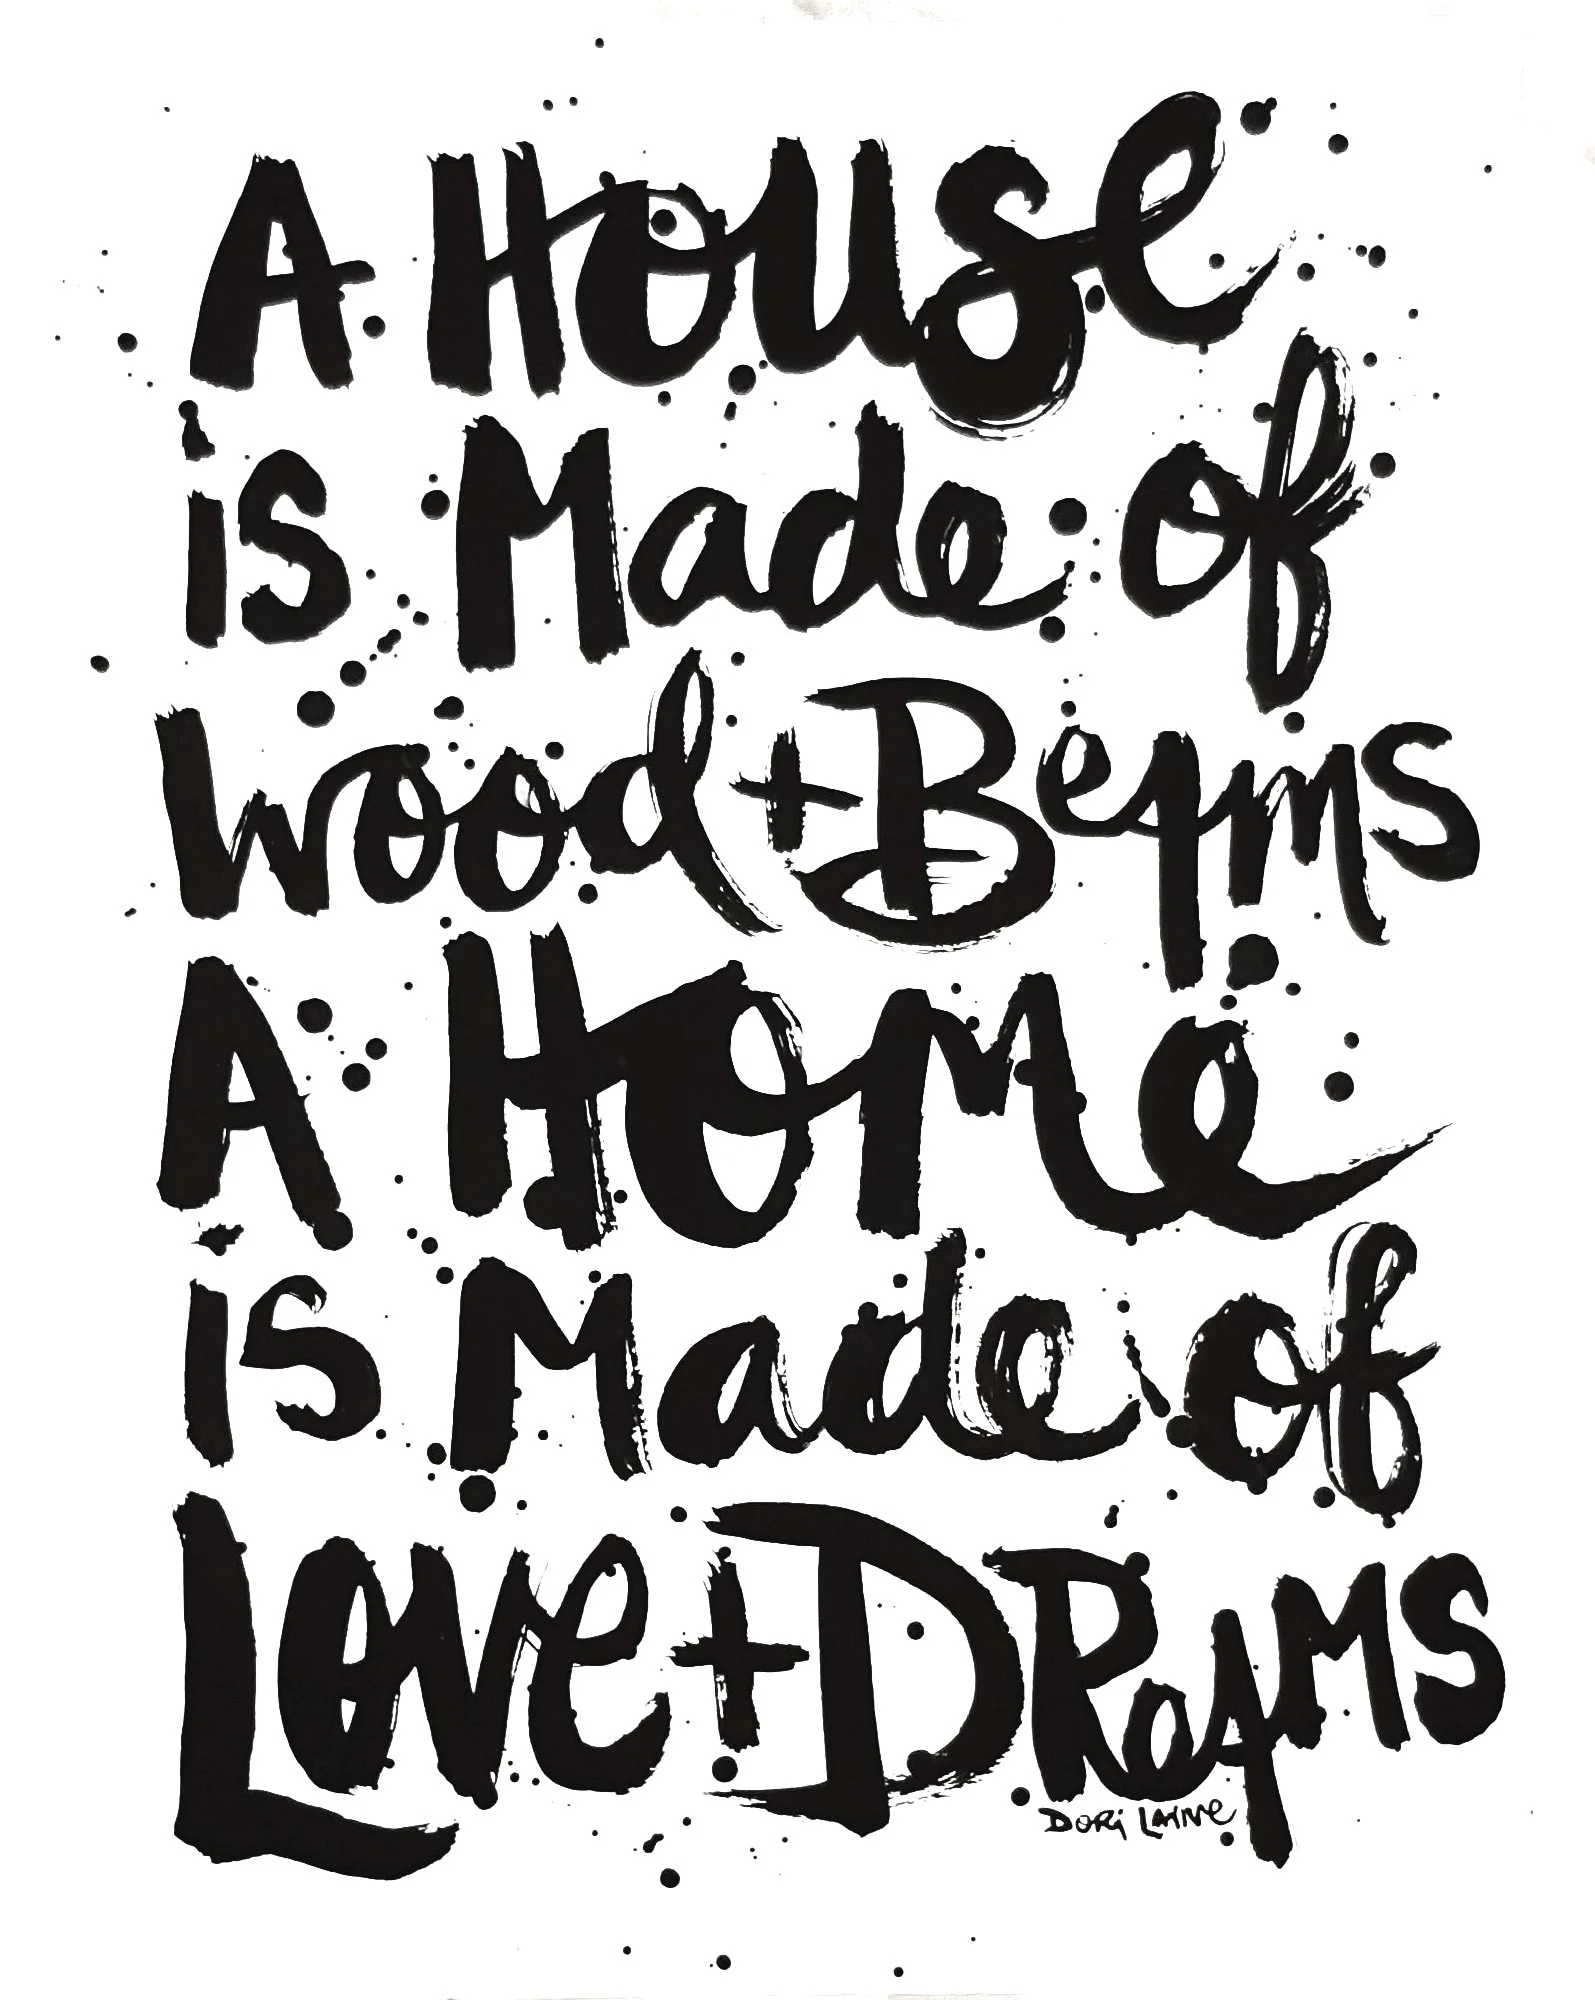 A House
is Made of
Wood + Beams
A Home
is Made of
Love + Dreams
Dori Laine